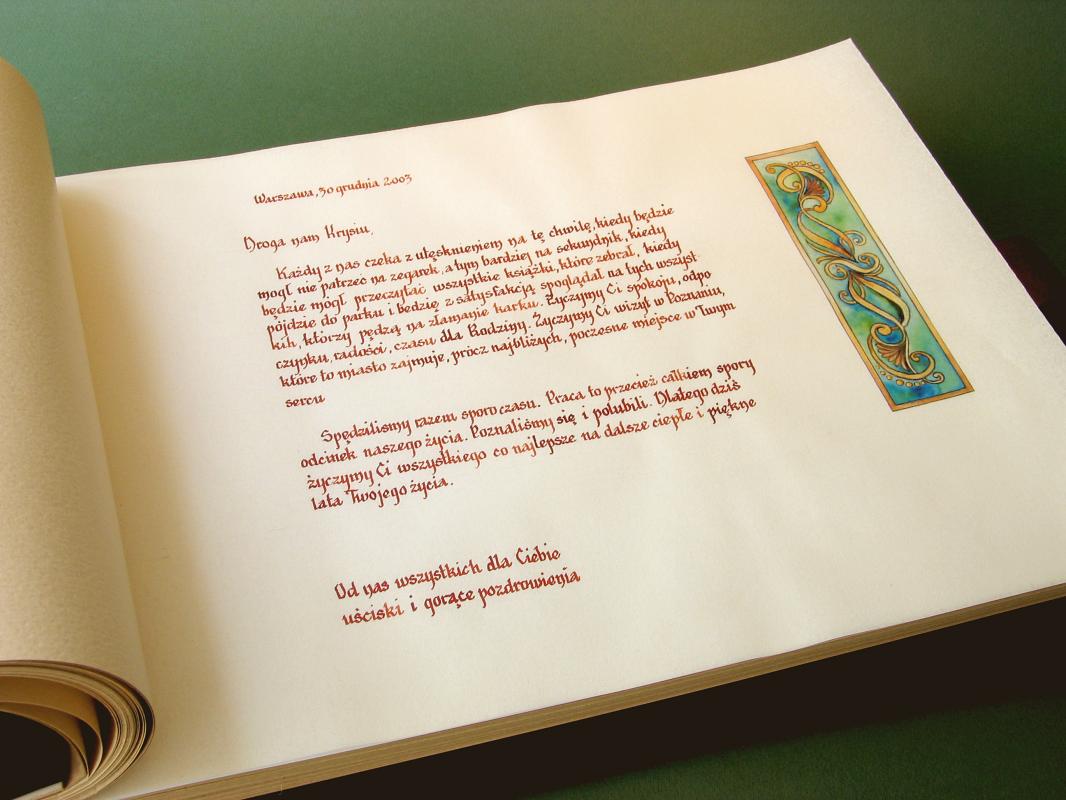 Warszawa, 30 grudnia 2003
Droga nam Krysiu,
Każdy z nas czeka z utęsknieniem na tę chwilę, kiedy będzie
mogł nie patrzeć na zegarek, a tym bardziej na sekundnik, kiedy
będzie mógł przeczytać wszystkie książki, które zebrał, kiedy
pójdzie do parku i będzie z satysfakcją spoglądał na tych wszyst-
kich, którzy pędzą na złamanie karku. Życzymy Ci spokoju, odpo
czynku, radości, czasu dla Rodziny. Życzymy Ci wizyt w Poznaniu,
które to miasto zajmuje, prócz najbliższych, poczesne miejsce w Twym
sercu
Spędziliśmy razem sporo czasu. Praca to przecież całkiem spory
odcinek naszego życia. Poznaliśmy się i polubili. Dlatego dziś
życzymy Ci wszystkiego co najlepsze na dalsze ciepłe i piękne
lata Twojego życia.
Od nas wszystkich dla Ciebie
uściski i gorące pozdrowienia